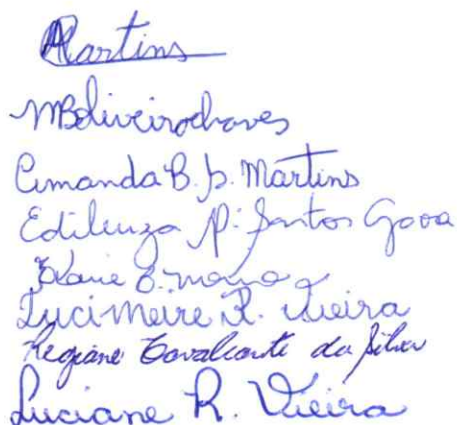 Martins
MBoliveirachaves
Amanda B. S. Martins
Edileuza P. Santos
Lucimeire R. Vieira
Regiane Cavalcante da Silva
Luciane R. Vieira